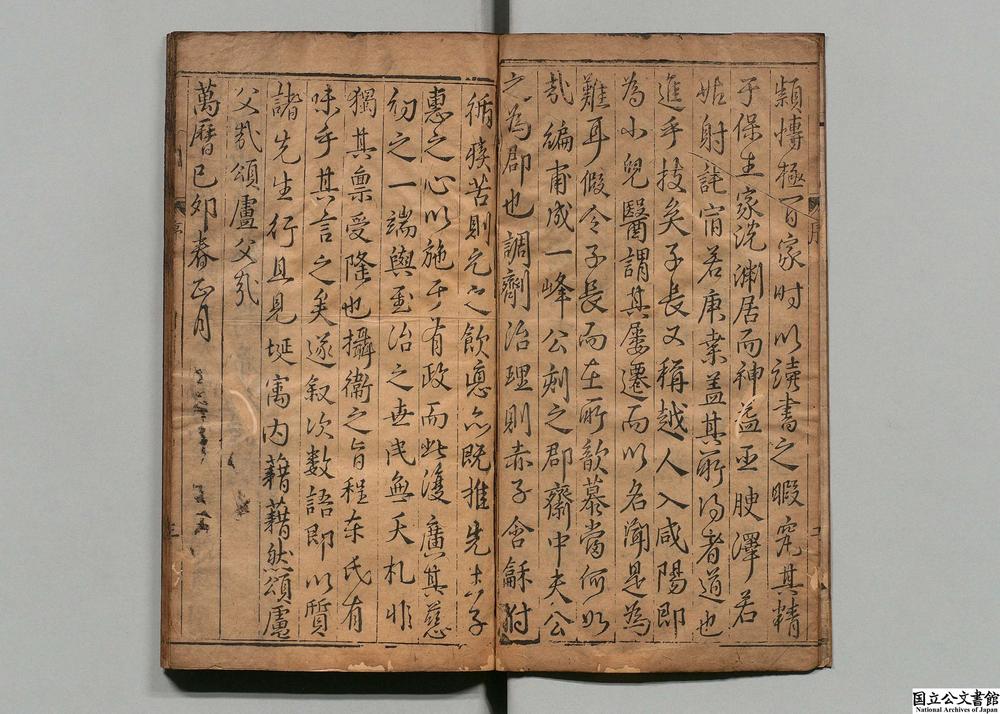 穎博極百家時以讀書之暇究其精
于保生家沈淵居而神益王腴澤若
姑射詫甯若庚桒蓋其所得者道也
進乎技矣子長又稱越人入咸陽即
為小兒醫謂其屡遷而以名聞是為
難耳假令子長而在所歆慕當何如
㢤編甫成一峰公刺之郡齋中夫公
之為郡也調劑治理則赤子含龢拊
循瘼苦則元之飲惪亦既推先士子
惠之心以施于有政而此復廣其慈
幼之一端與至治之世民無夭札非
獨其稟受隆也攝衛之旨程朱氏有
味乎其言之矣遂叙次數語即以質
諸先生行且見埏寓內藉藉然頌盧
父㢤頌盧父㢤
萬曆己卯春正月
序
二
序
三
国立公文書館
National Archives of Japan